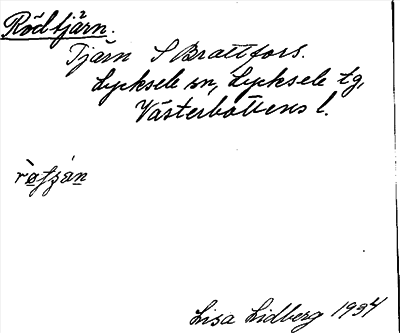 Rödtjärn.
Tjärn S Brattfors.
Lycksele sn, Lycksele tg,
Västerbottens l.
Lisa Lidberg 1934